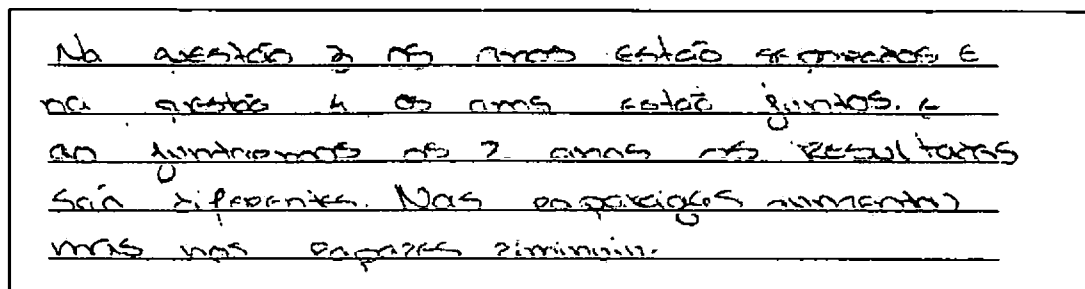 Na questão 3 os anos estão separados e
na questão 4 os anos estão juntos. e
ao juntarmos os 2 anos os resultados
são diferentes. Nas raparigas aumentou
mas nos rapazes diminuiu.